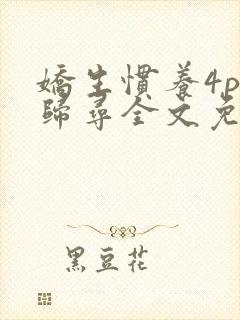 嬌生慣養4p
歸尋全文免
黑豆花